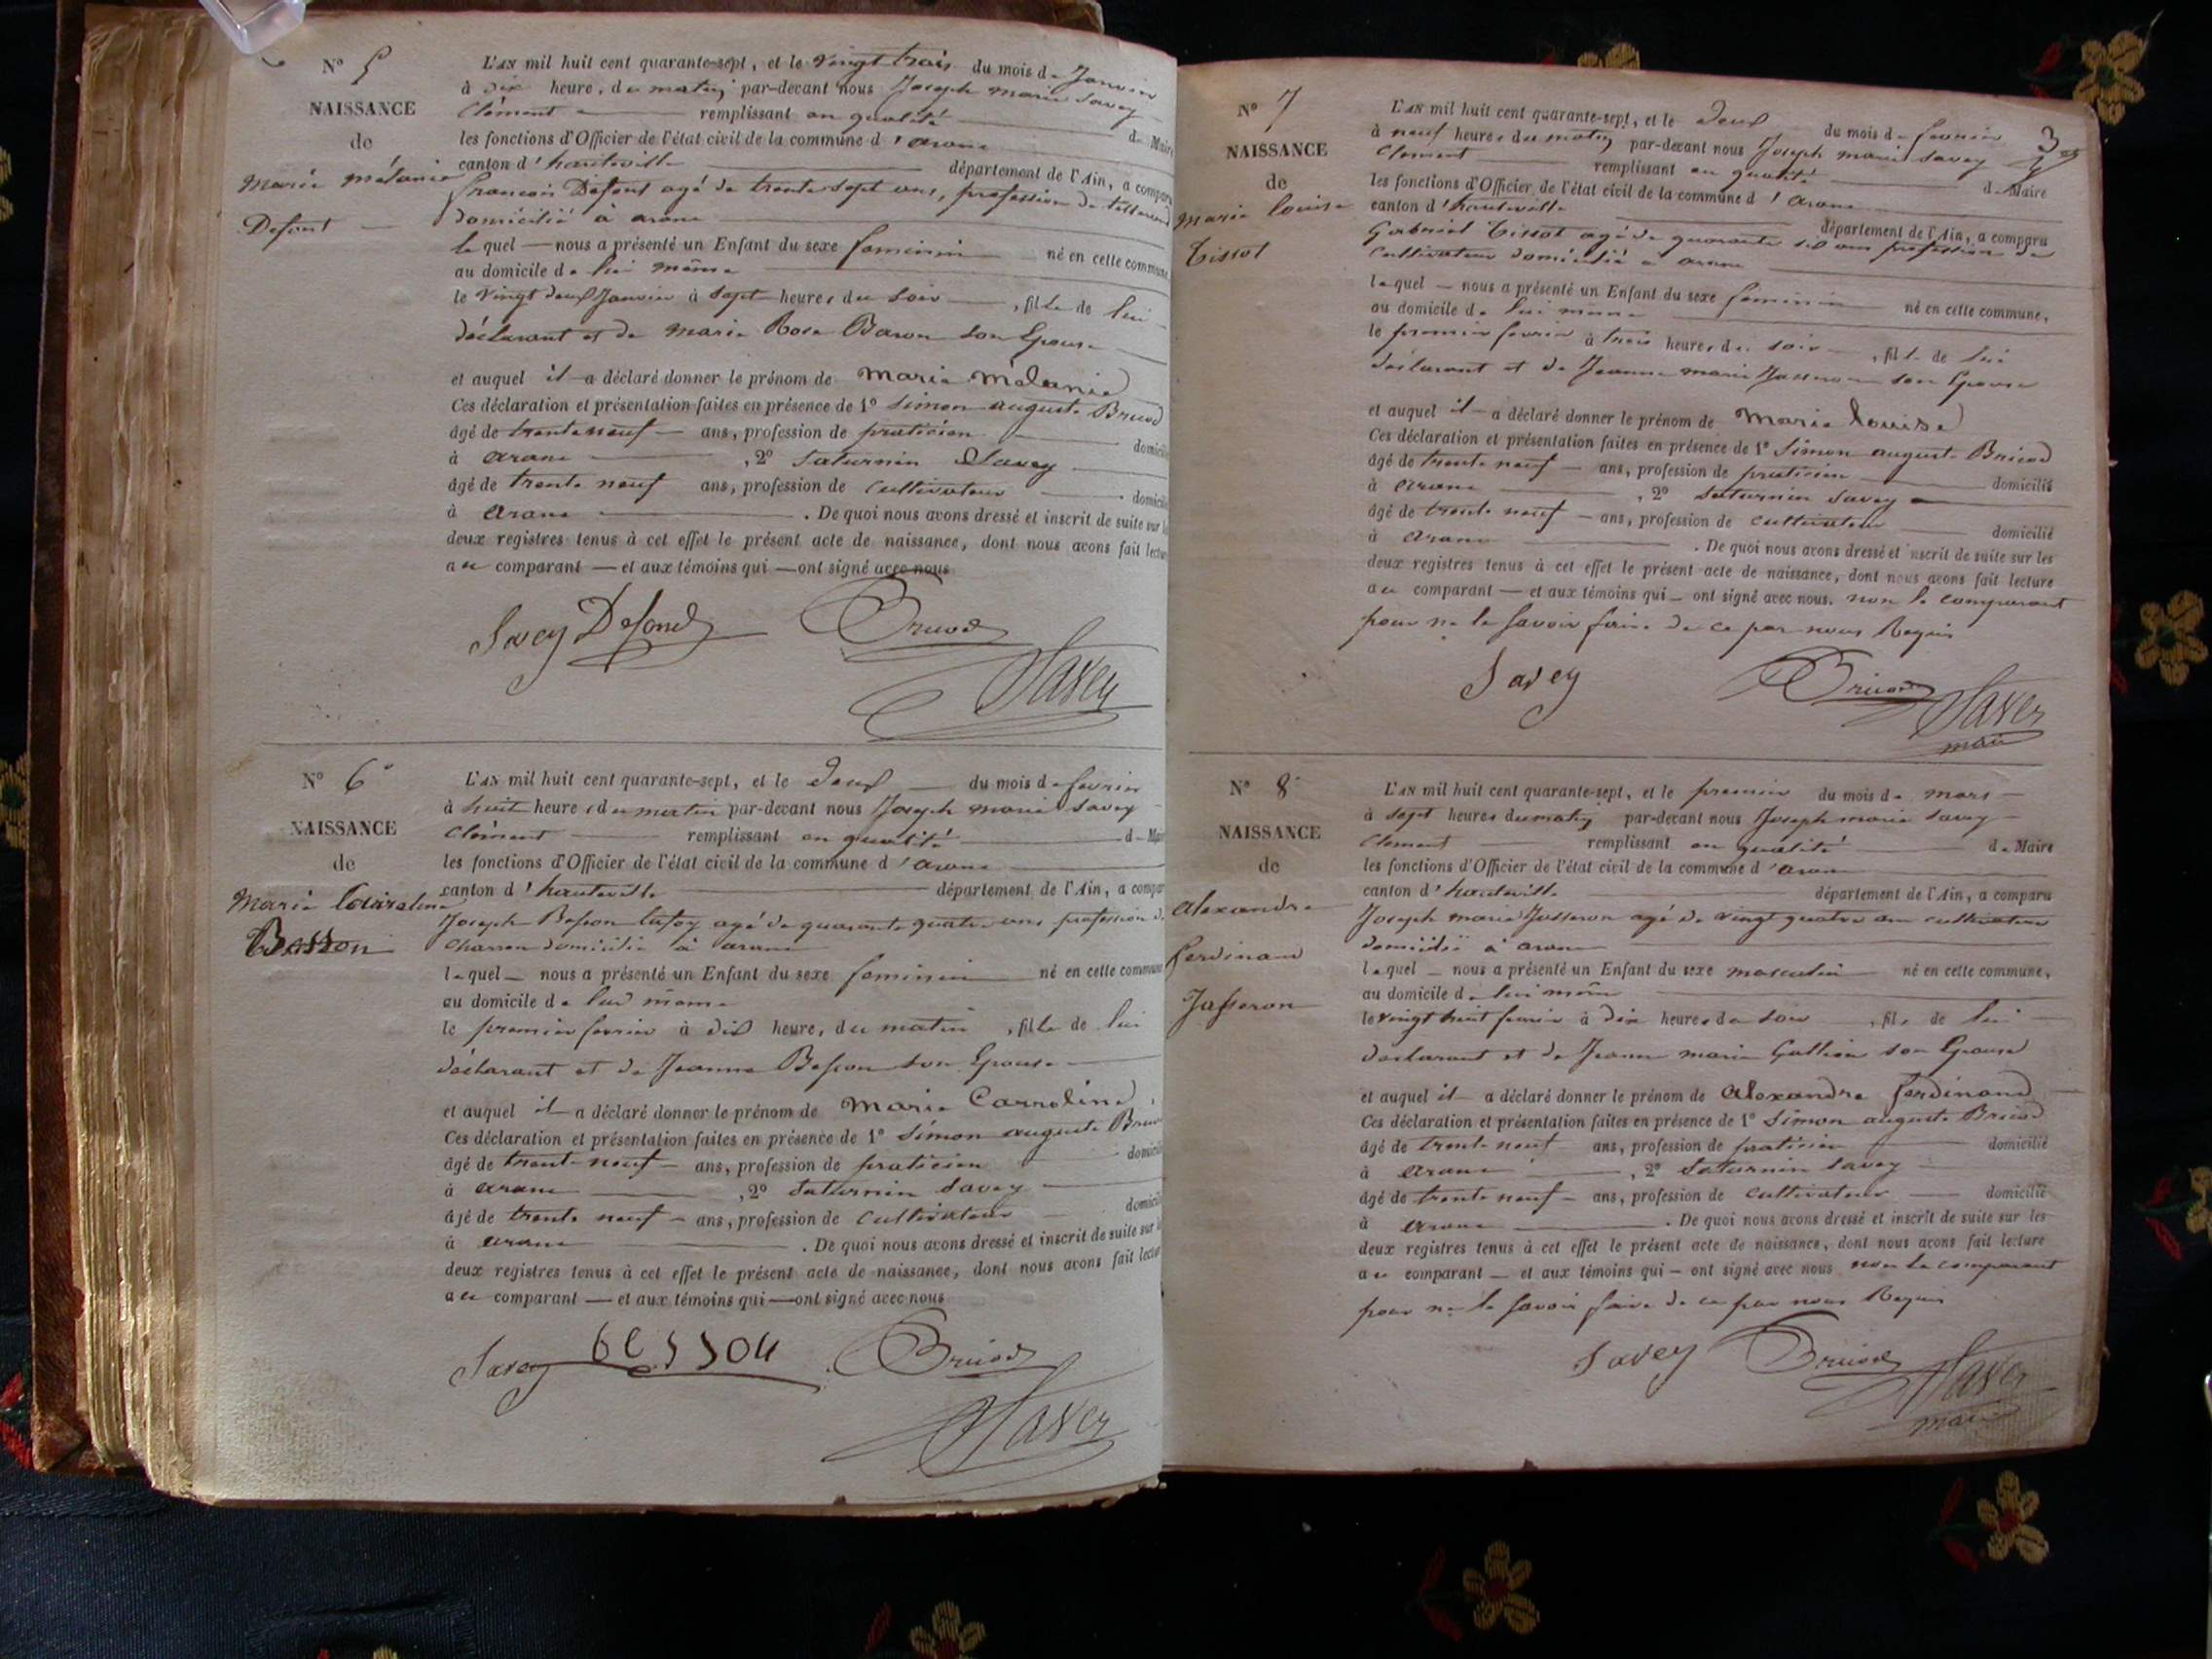 N° 5
NAISSANCE
de
Marie mélanie
Defont
L'AN mil huit cent quarante-sept, et le vingt trois du mois de Janvier
à dix heures du matin par-devant nous Joseph marie Savey
Clément remplissant en qualité de Maire
les fonctions d'Officier de l'état civil de la commune d'arane
canton d'hauteville département de l'Ain, a comparu
francois Defont agé de trente sept ans, profession de tisserand
domicilié à arane
lequel nous a présenté un Enfant du sexe feminin né en cette commune
au domicile de lui même
le vingt deux Janvier à sept heures du soir, fille de lui
déclarant et de marie Rose Baron son Epouse
et auquel il a déclaré donner le prénom de marie mélanie
Ces déclaration et présentation faites en présence de 1° Simon auguste Bruod
âgé de trente neuf ans, profession de praticien domicilié
à arane, 2° Saturnin Savey
âgé de trente neuf ans, profession de cultivateur domicilié
à arane. De quoi nous avons dressé et inscrit de suite sur les
deux registres tenus à cet effet le présent acte de naissance, dont nous avons fait lecture
au comparant et aux témoins qui ont signé avec nous
Savey Defond Bruod
Savey
N° 6
NAISSANCE
de
Marie Carroline
Besson
L'AN mil huit cent quarante-sept, et le deux du mois de fevrier
à huit heures du matin par-devant nous Joseph marie Savey
Clément remplissant en qualité de Maire
les fonctions d'Officier de l'état civil de la commune d'arane
canton d'hauteville département de l'Ain, a comparu
Joseph Besson agé de quarante quatre ans profession de
charron domicilié à arane
lequel nous a présenté un Enfant du sexe feminin né en cette commune
au domicile de lui même
le premier fevrier à dix heures du matin, fille de lui
déclarant et de Jeanne Besson son Epouse
et auquel il a déclaré donner le prénom de marie Carroline
Ces déclaration et présentation faites en présence de 1° Simon auguste Bruod
âgé de trente neuf ans, profession de praticien domicilié
à arane, 2° Saturnin Savey
âgé de trente neuf ans, profession de cultivateur domicilié
à arane. De quoi nous avons dressé et inscrit de suite sur les
deux registres tenus à cet effet le présent acte de naissance, dont nous avons fait lecture
au comparant et aux témoins qui ont signé avec nous
Savey besson Bruod
Savey
3
N° 7
NAISSANCE
de
marie louise
Tissot
L'AN mil huit cent quarante-sept, et le deux du mois de fevrier
à neuf heures du matin par-devant nous Joseph marie Savey
Clement remplissant en qualité de Maire
les fonctions d'Officier de l'état civil de la commune d'arane
canton d'hauteville département de l'Ain, a comparu
Gabriel Tissot agé de quarante six ans profession de
cultivateur domicilié à arane
lequel nous a présenté un Enfant du sexe feminin né en cette commune,
au domicile de lui même
le premier fevrier à trois heures du soir, fille de lui
déclarant et de Jeanne marie Jasseron son Epouse
et auquel il a déclaré donner le prénom de marie louise
Ces déclaration et présentation faites en présence de 1° Simon auguste Bruod
âgé de trente neuf ans, profession de praticien domicilié
à arane, 2° Saturnin Savey
âgé de trente neuf ans, profession de cultivateur domicilié
à arane. De quoi nous avons dressé et inscrit de suite sur les
deux registres tenus à cet effet le présent acte de naissance, dont nous avons fait lecture
au comparant et aux témoins qui ont signé avec nous. non le comparant
pour ne le savoir faire de ce par nous Requis
Savey Bruod Savey
maire
N° 8
NAISSANCE
de
alexandre
ferdinand
Jasseron
L'AN mil huit cent quarante-sept, et le premier du mois de mars
à sept heures du matin par-devant nous Joseph marie Savey
Clement remplissant en qualité de Maire
les fonctions d'Officier de l'état civil de la commune d'arane
canton d'hauteville département de l'Ain, a comparu
Joseph marie Jasseron agé de vingt quatre ans cultivateur
domicilié à arane
lequel nous a présenté un Enfant du sexe masculin né en cette commune,
au domicile de lui même
le vingt huit fevrier à dix heures du soir, fils de lui
déclarant et de Jeanne marie Gallien son Epouse
et auquel il a déclaré donner le prénom de alexandre ferdinand
Ces déclaration et présentation faites en présence de 1° Simon auguste Bruod
âgé de trente neuf ans, profession de praticien domicilié
à arane, 2° Saturnin Savey
âgé de trente neuf ans, profession de cultivateur domicilié
à arane. De quoi nous avons dressé et inscrit de suite sur les
deux registres tenus à cet effet le présent acte de naissance, dont nous avons fait lecture
au comparant et aux témoins qui ont signé avec nous non le comparant
pour ne le savoir faire de ce par nous Requis
Savey Bruod Savey
maire